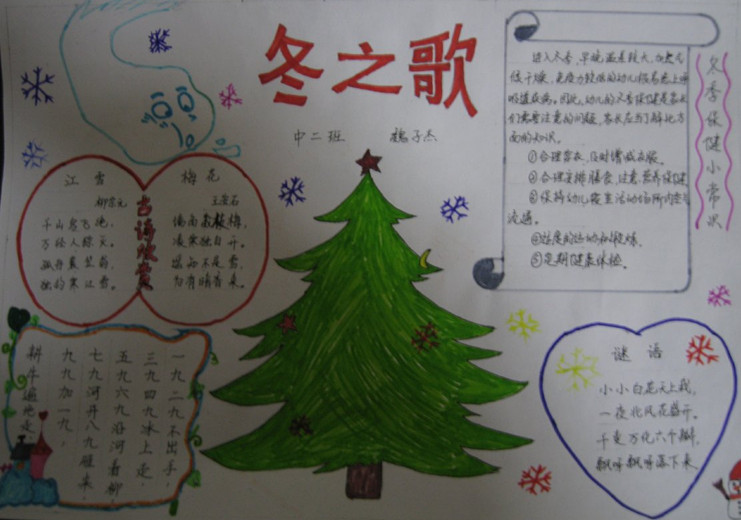 冬之歌
中二班 魏子杰
江雪
柳宗元
千山鸟飞绝,
万径人踪灭。
孤舟蓑笠翁,
独钓寒江雪。
古诗欣赏
梅花
王安石
墙角数枝梅,
凌寒独自开。
遥知不是雪,
为有暗香来。
冬季保健小常识
进入冬季,早晚温差较大,自然气
候干燥,免疫力较低的幼儿很易患上呼
吸道疾病。因此,幼儿的冬季保健是家长
们需要注意的问题,家长应当了解北方
面的知识。
①合理穿衣,及时增减衣服。
②合理安排膳食,注意营养保健
③保持幼儿寝室活动场所内空气
流通。
④适度的运动和锻炼。
⑤定期健康体检。
一九二九不出手,
三九四九冰上走,
五九六九沿河看柳
七九河开八九雁来,
九九加一九,
耕牛遍地走
谜语
小小白花天上栽,
一夜北风花盛开。
千变万化六个瓣,
飘呀飘呀落下来